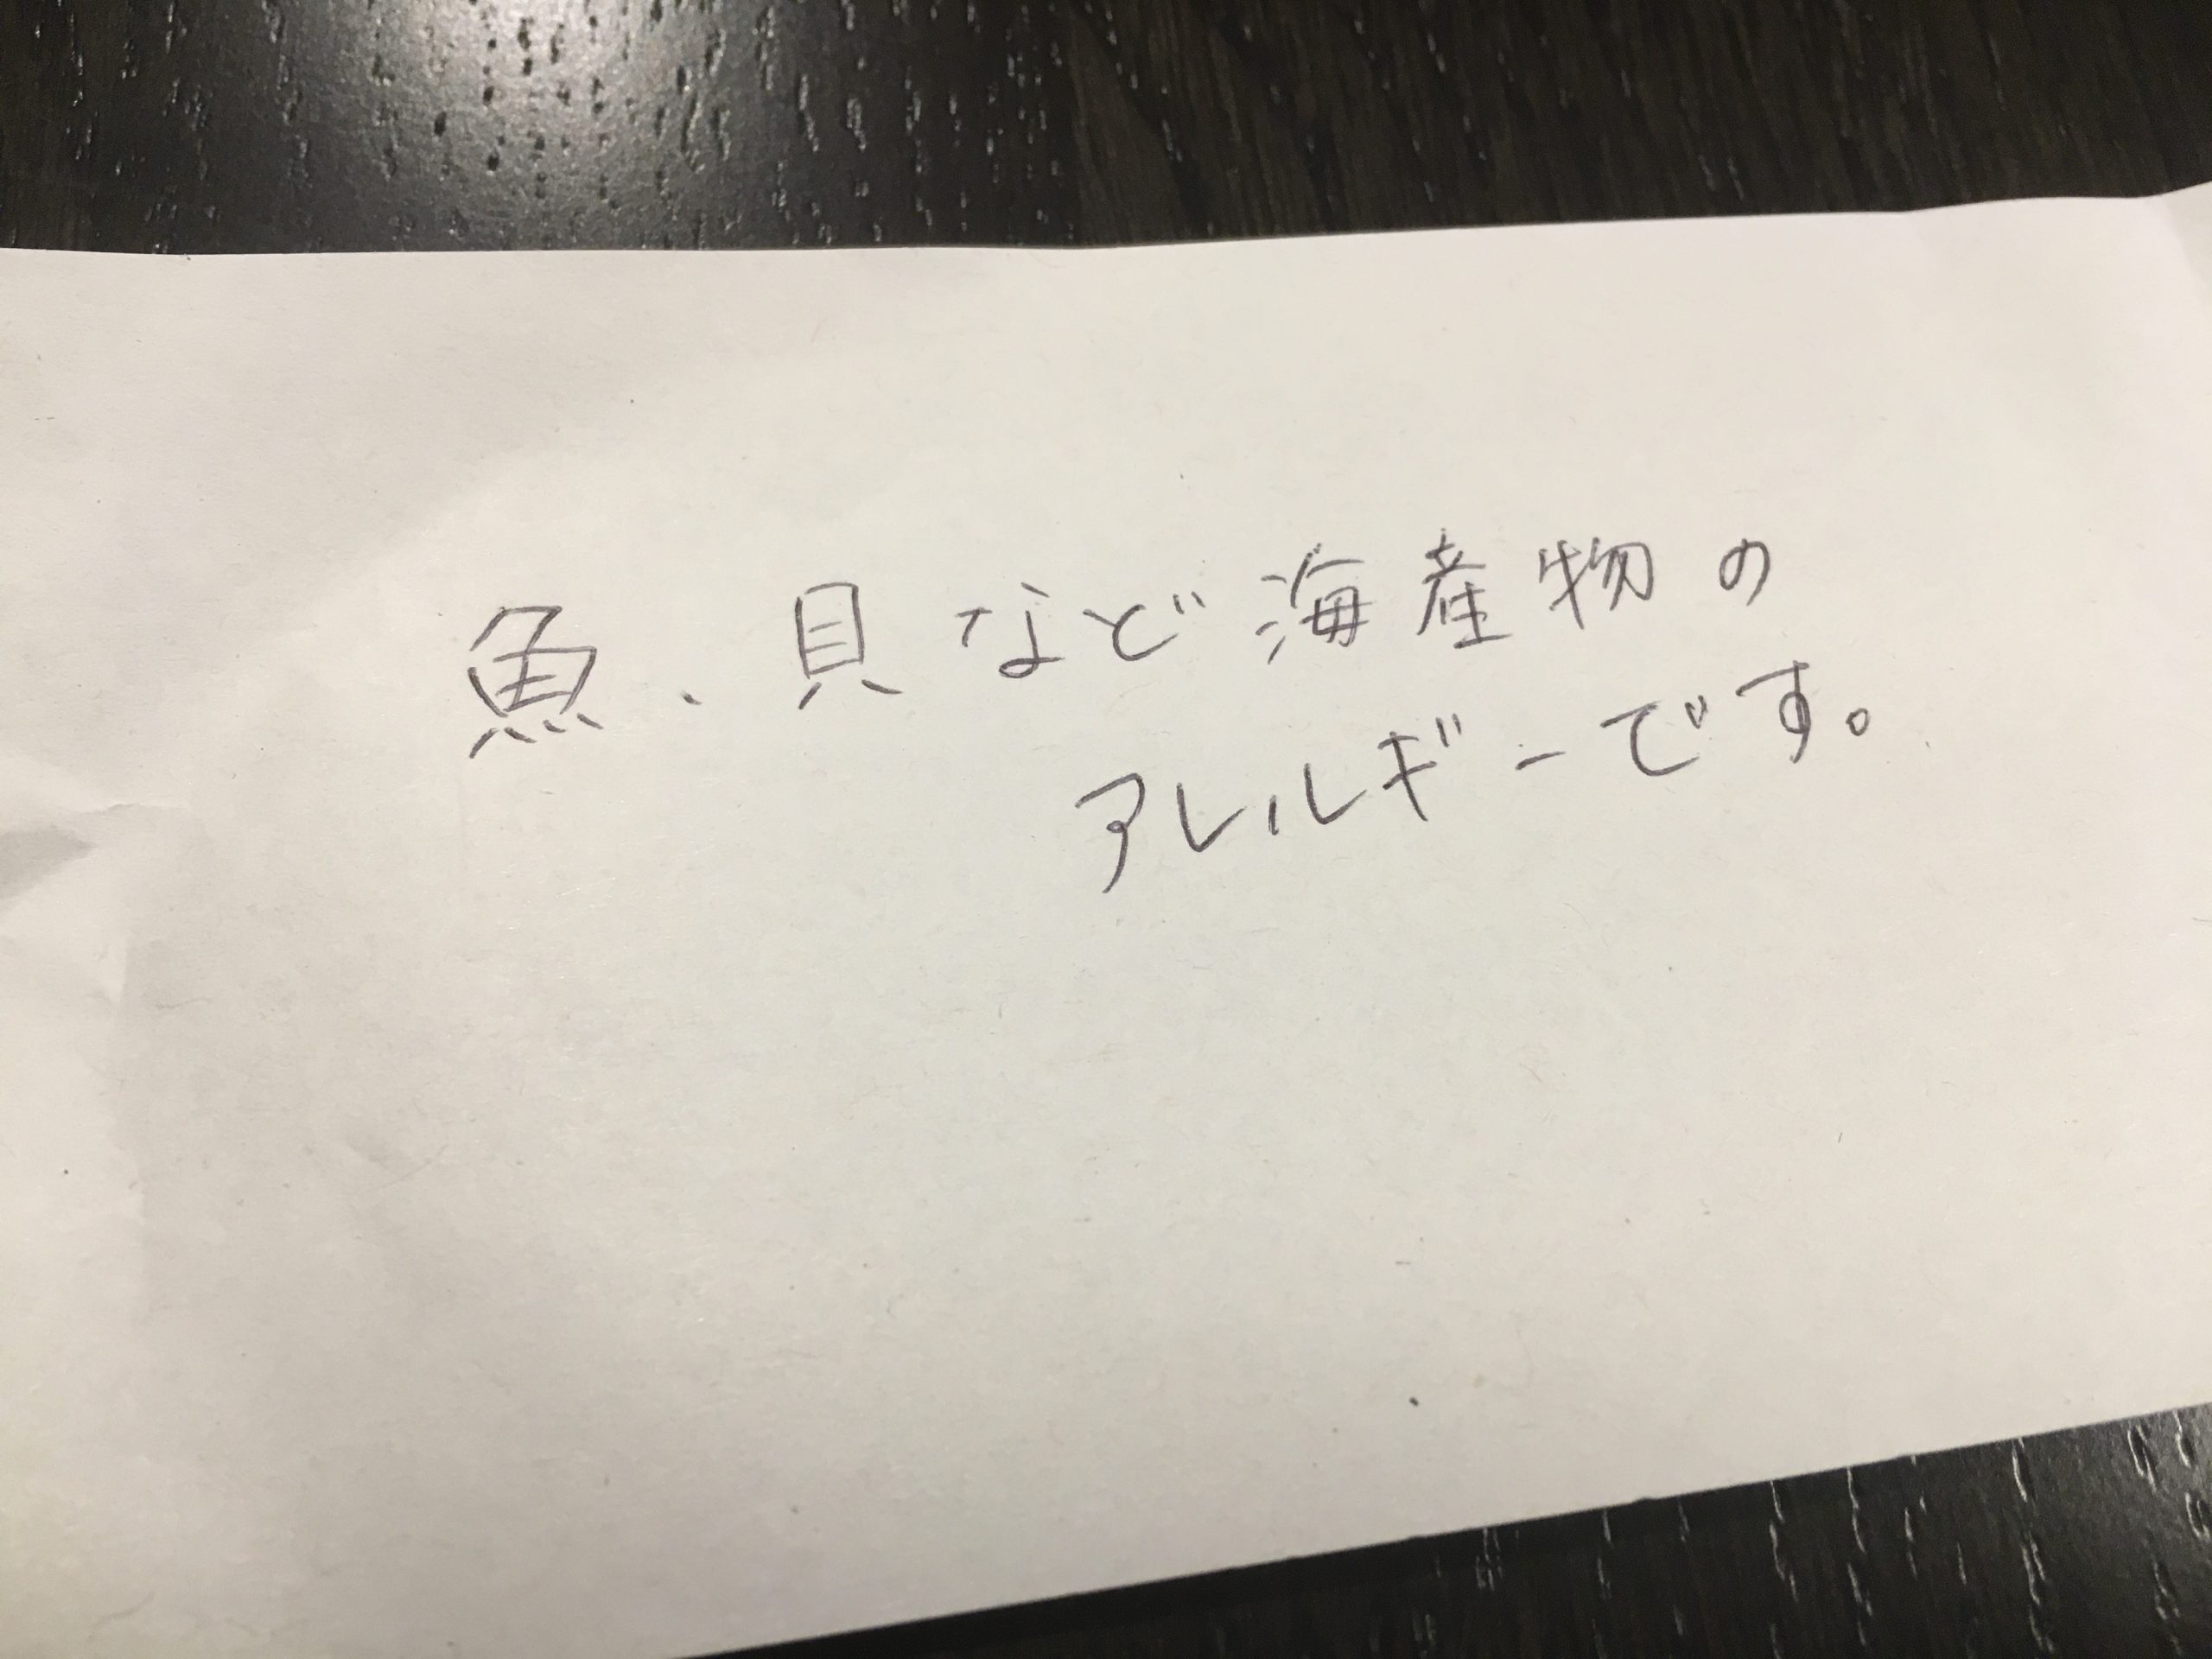 魚、貝など海産物の
アレルギーです。